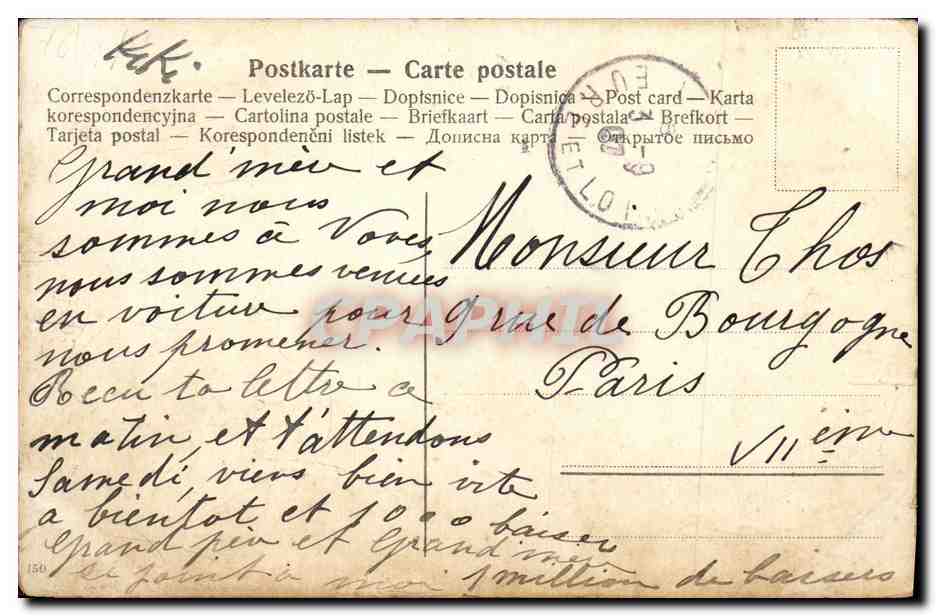 Kiki.
Postkarte — Carte postale
Correspondenzkarte — Levelező-Lap — Dopisnice — Dopisnica — Post card — Karta
korespondencyjna — Cartolina postale — Briefkaart — Carta postala — Brefkort —
Tarjeta postal — Korespondenční listek — Дописна карта — Открытое письмо
EURE ET LOIR
Grand'mère et
moi nous
sommes à Voves,
nous sommes venues
en voiture pour
nous promener.
Recu ta lettre ce
matin, et t'attendons
Samedi, viens bien vite
a bientot et 1000 baisers
Grand père et Grand mère
se joint à moi 1 million de baisers
Monsieur Thos
9 rue de Bourgogne
Paris
VII ème
150
CPAPHIL